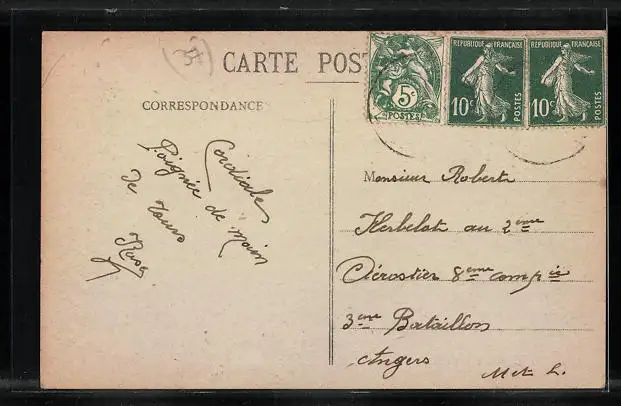 (37)
CARTE POS
5c
POSTES
REPUBLIQUE FRANÇAISE
10c
POSTES
REPUBLIQUE FRANÇAISE
10c
POSTES
CORRESPONDANCE
Cordiale
Poignée de main
de Tours
Monsieur Robert
Herbelot au 2ème
Aérostier 8ème compie
3ème Bataillon
Angers
M et L.